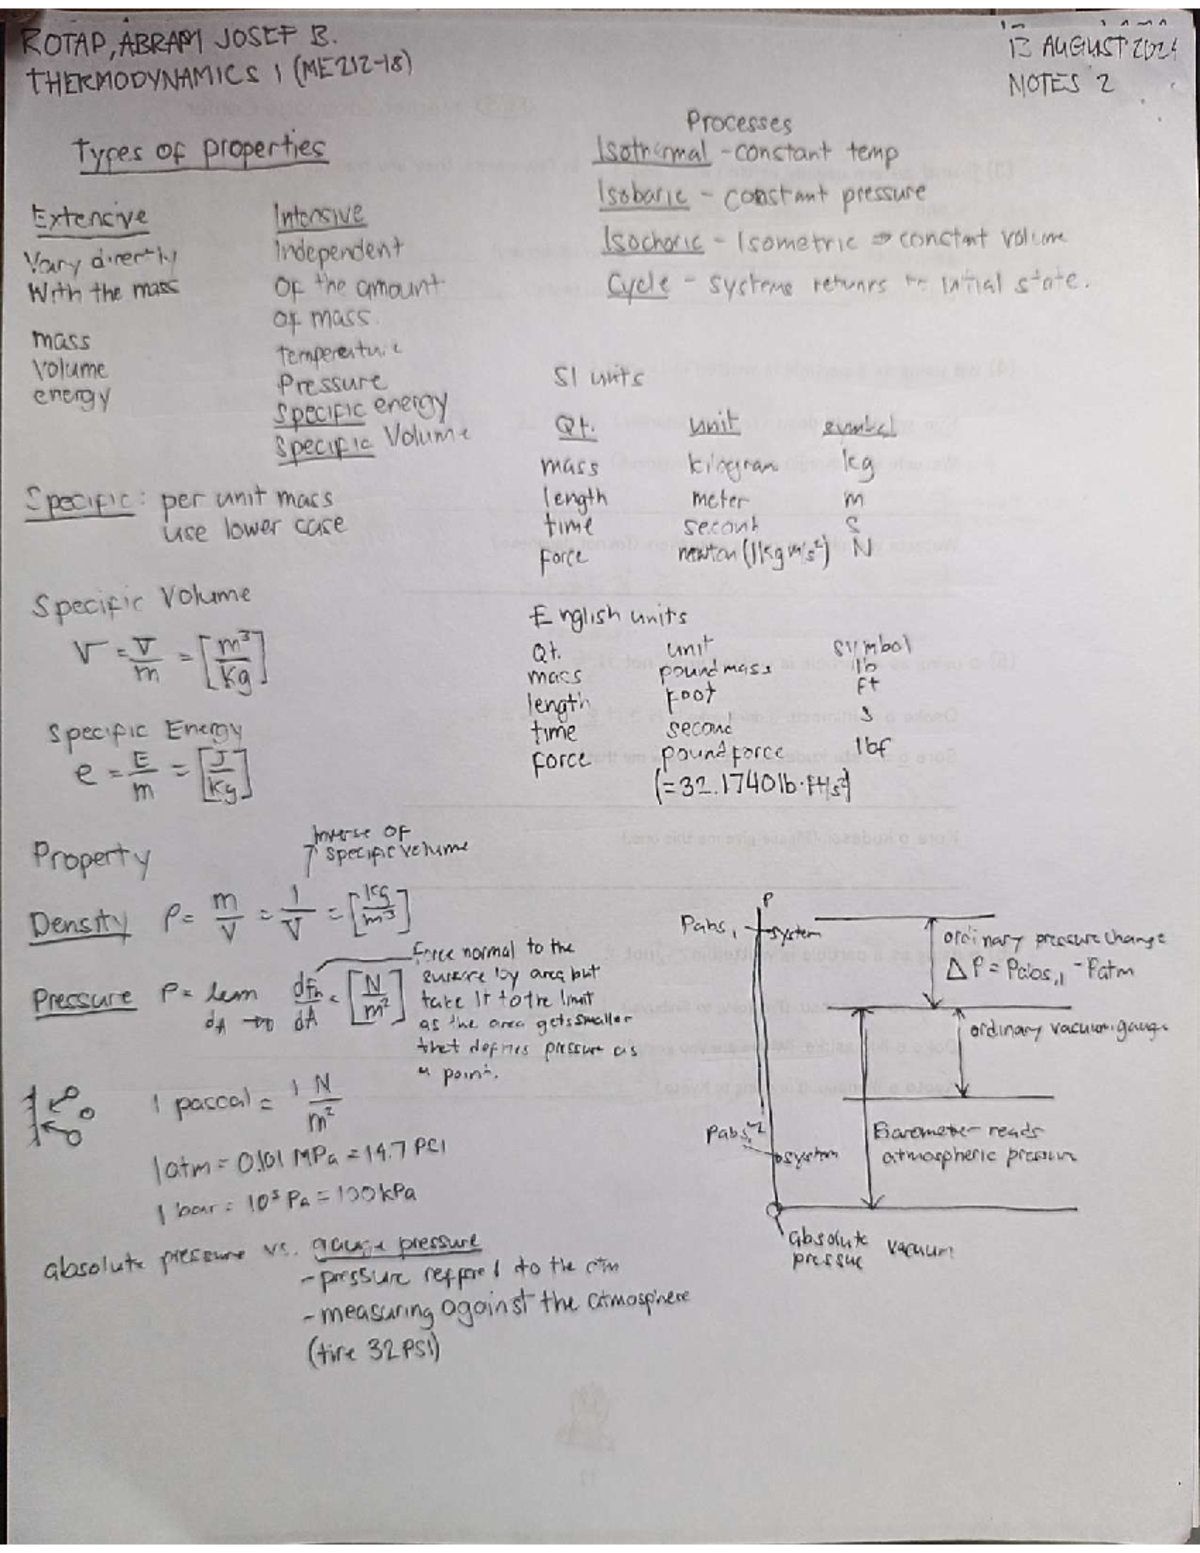 ROTAP, ABRAM JOSEF B.
THERMODYNAMICS 1 (ME212-18)
13 AUGUST 2024
NOTES 2
Types of properties
Extensive
Vary directly
With the mass
mass
Volume
energy
Intensive
Independent
Of the amount
of mass.
temperature
Pressure
Specific energy
Specific Volume
Specific: per unit mass
use lower case
Specific Volume
v = V/m = [m³/kg]
Specific Energy
e = E/m = [J/kg]
Processes
Isothermal - constant temp
Isobaric - constant pressure
Isochoric - Isometric ⇒ constant volume
Cycle - systems returns to initial state.
SI units
Qt. unit symbol
mass kilogram kg
length meter m
time second s
force newton (1kg m/s²) N
English units
Qt. unit symbol
mass pound mass lb
length foot ft
time second s
force pound force lbf
(=32.1740 lb·ft/s²)
Property
inverse of
specific volume
Density ρ = m/V = 1/v = [kg/m³]
Pressure P = lim dA→0 dFn/dA = [N/m²]
Force normal to the
surface by area but
take it to the limit
as the area gets smaller
that defines pressure as
a point.
1 pascal = 1 N/m²
1 atm = 0.101 MPa = 14.7 PSI
1 bar = 10⁵ Pa = 100 kPa
absolute pressure vs. gauge pressure
- pressure to the atm
- measuring against the atmosphere
(tire 32 PSI)
P
Pabs,1
system
ordinary pressure change
ΔP = Pabs,1 - Patm
ordinary vacuum gauge
Pabs,2
system
Barometer reads
atmospheric pressure
absolute
pressue
vacuum